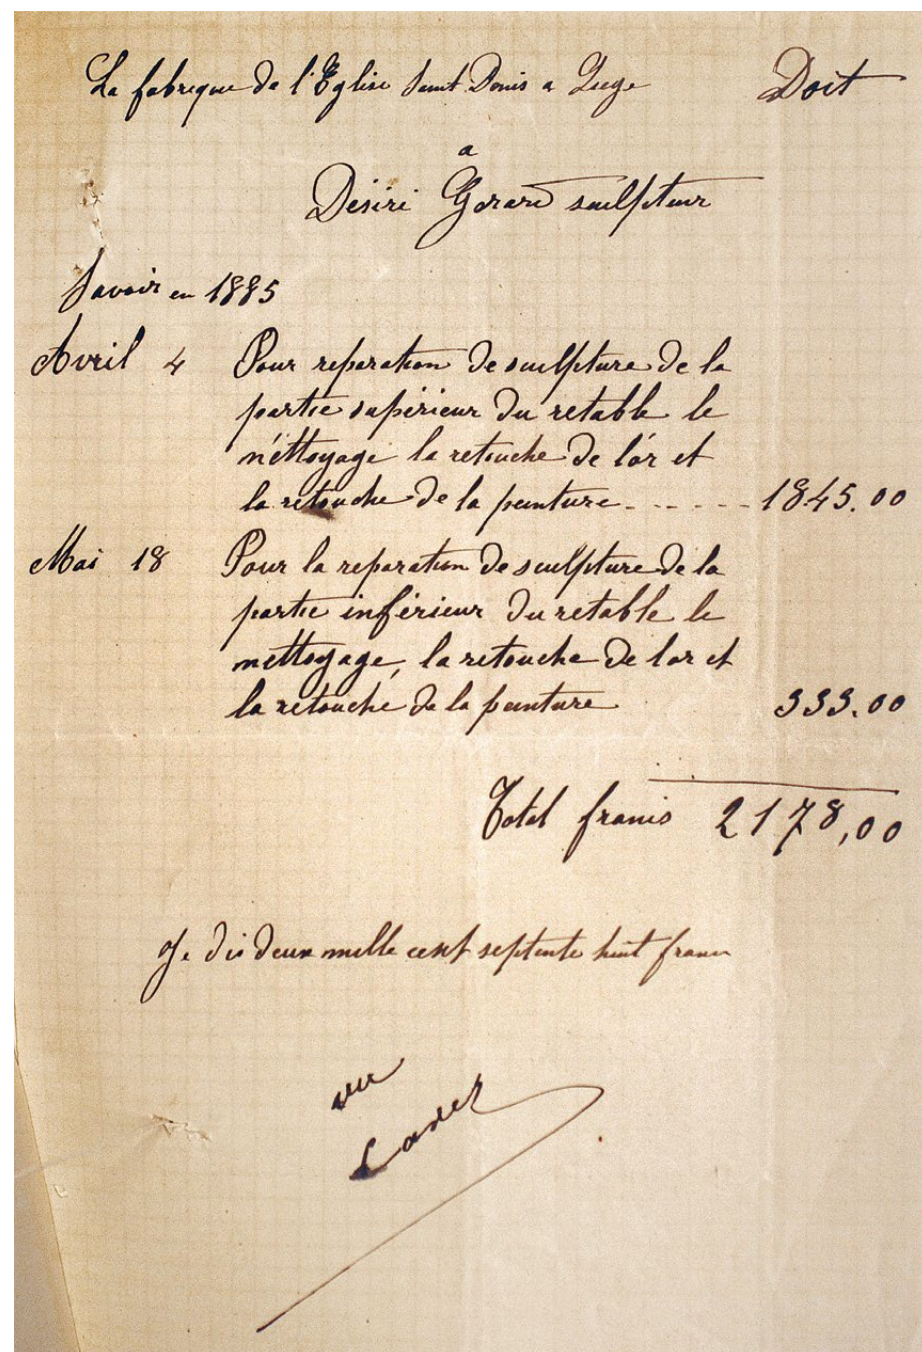 La fabrique de l'Eglise Saint Denis a Liege Doit
a
Désiré Gerard sculpteur
Savoir en 1885
Avril 4 Pour reparation de sculpture de la
partie supérieur du retable le
néttoyage la retouche de l'or et
la retouche de la peinture - - - - - 1845.00
Mai 18 Pour la reparation de sculpture de la
partie inférieur du retable le
nettoyage, la retouche de l'or et
la retouche de la peinture 333.00
Total francs 2178,00
Je dis deux mille cent septente huit francs
vu